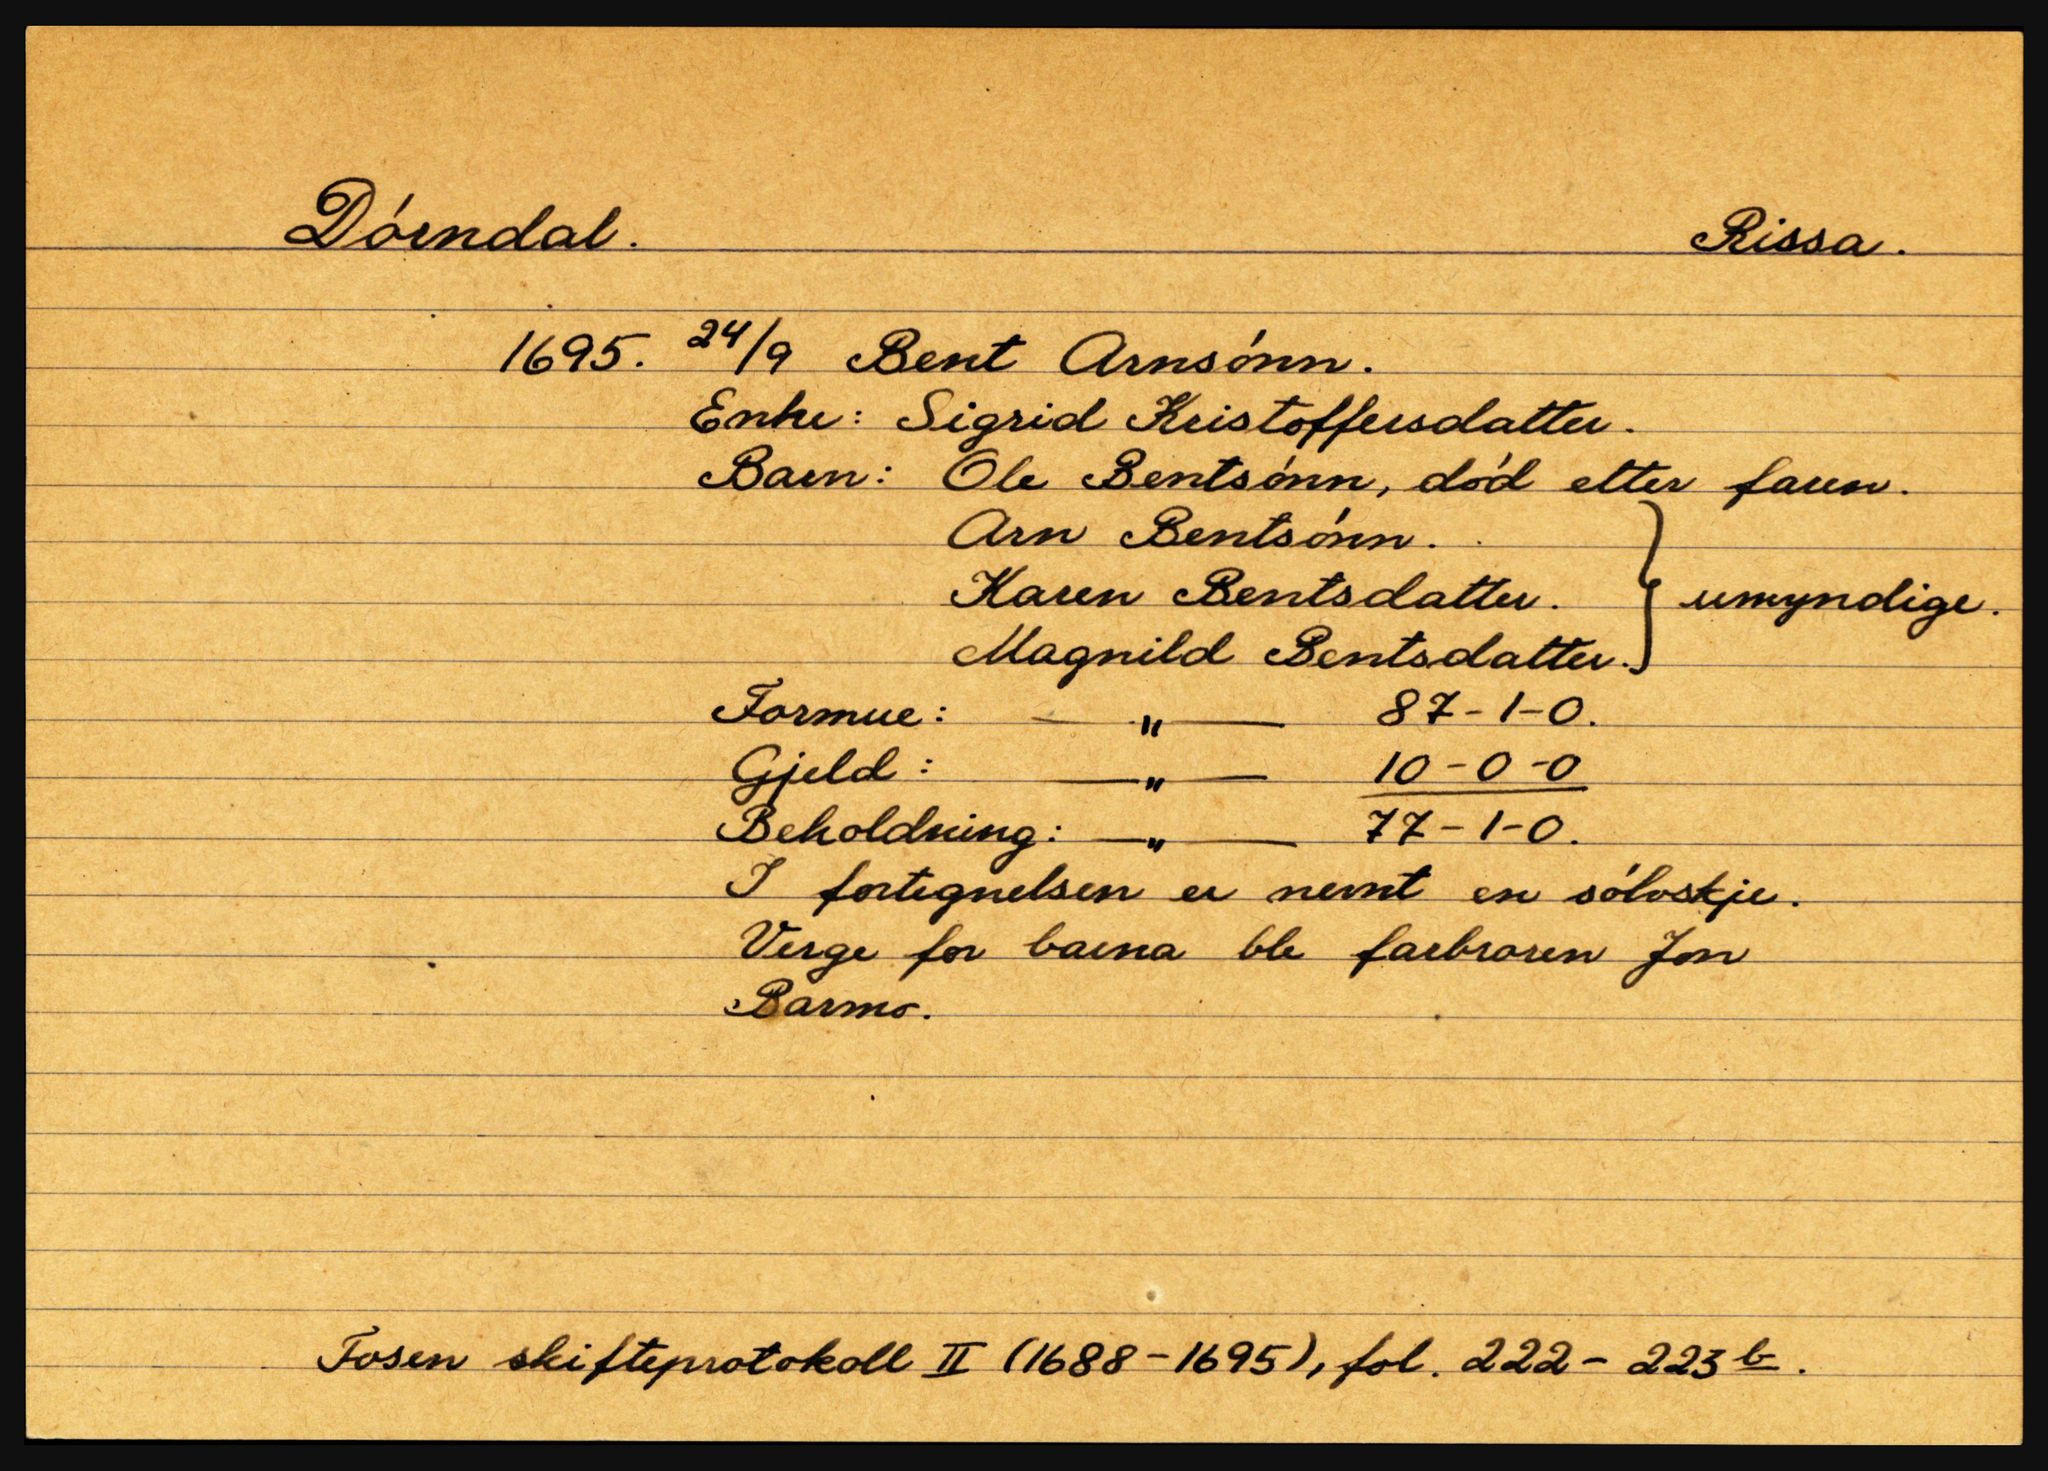 Dórndal. Rissa.
1695. 24/9 Bent Arnsónn.
Enke: Sigrid Kristoffersdatter.
Barn: Ole Bentsónn, dód etter faren.
Arn Bentsónn.
Karen Bentsdatter. } umyndige.
Magnild Bentsdatter.
Formue: — " — 87-1-0.
Gjeld: — " — 10-0-0
Beholdning: — " — 77-1-0.
I fortegnelsen er nevnt en sólvskje.
Verge for barna ble farbroren Jon
Barmo.
Fosen skifteprotokoll II (1688-1695), fol. 222-223 b.